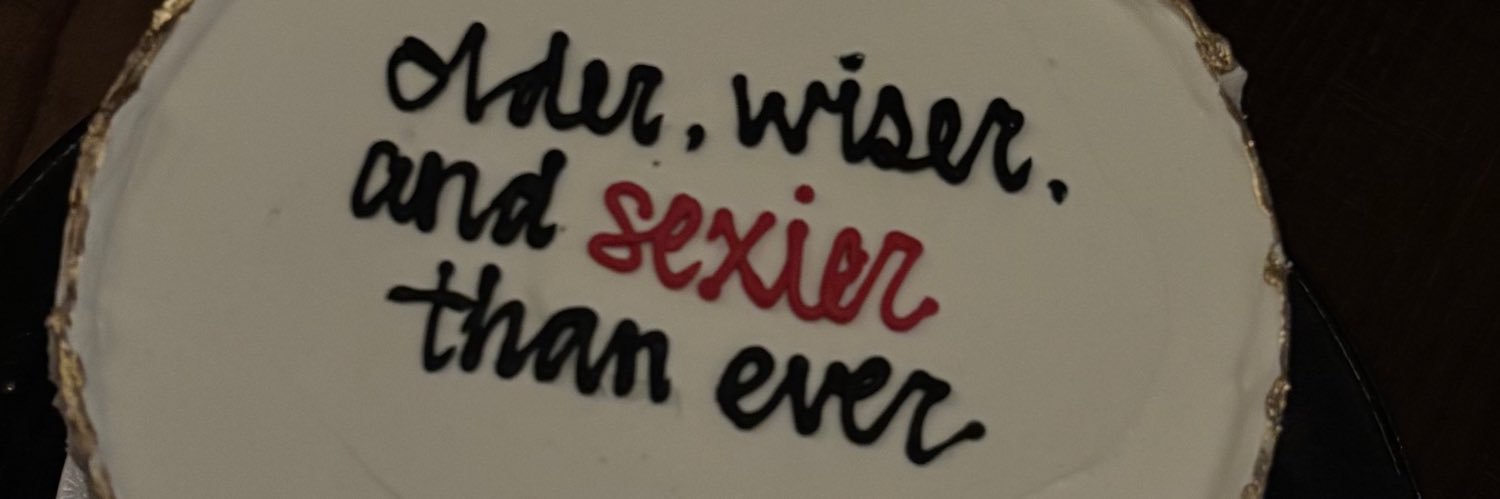 older, wiser,
and sexier
than ever